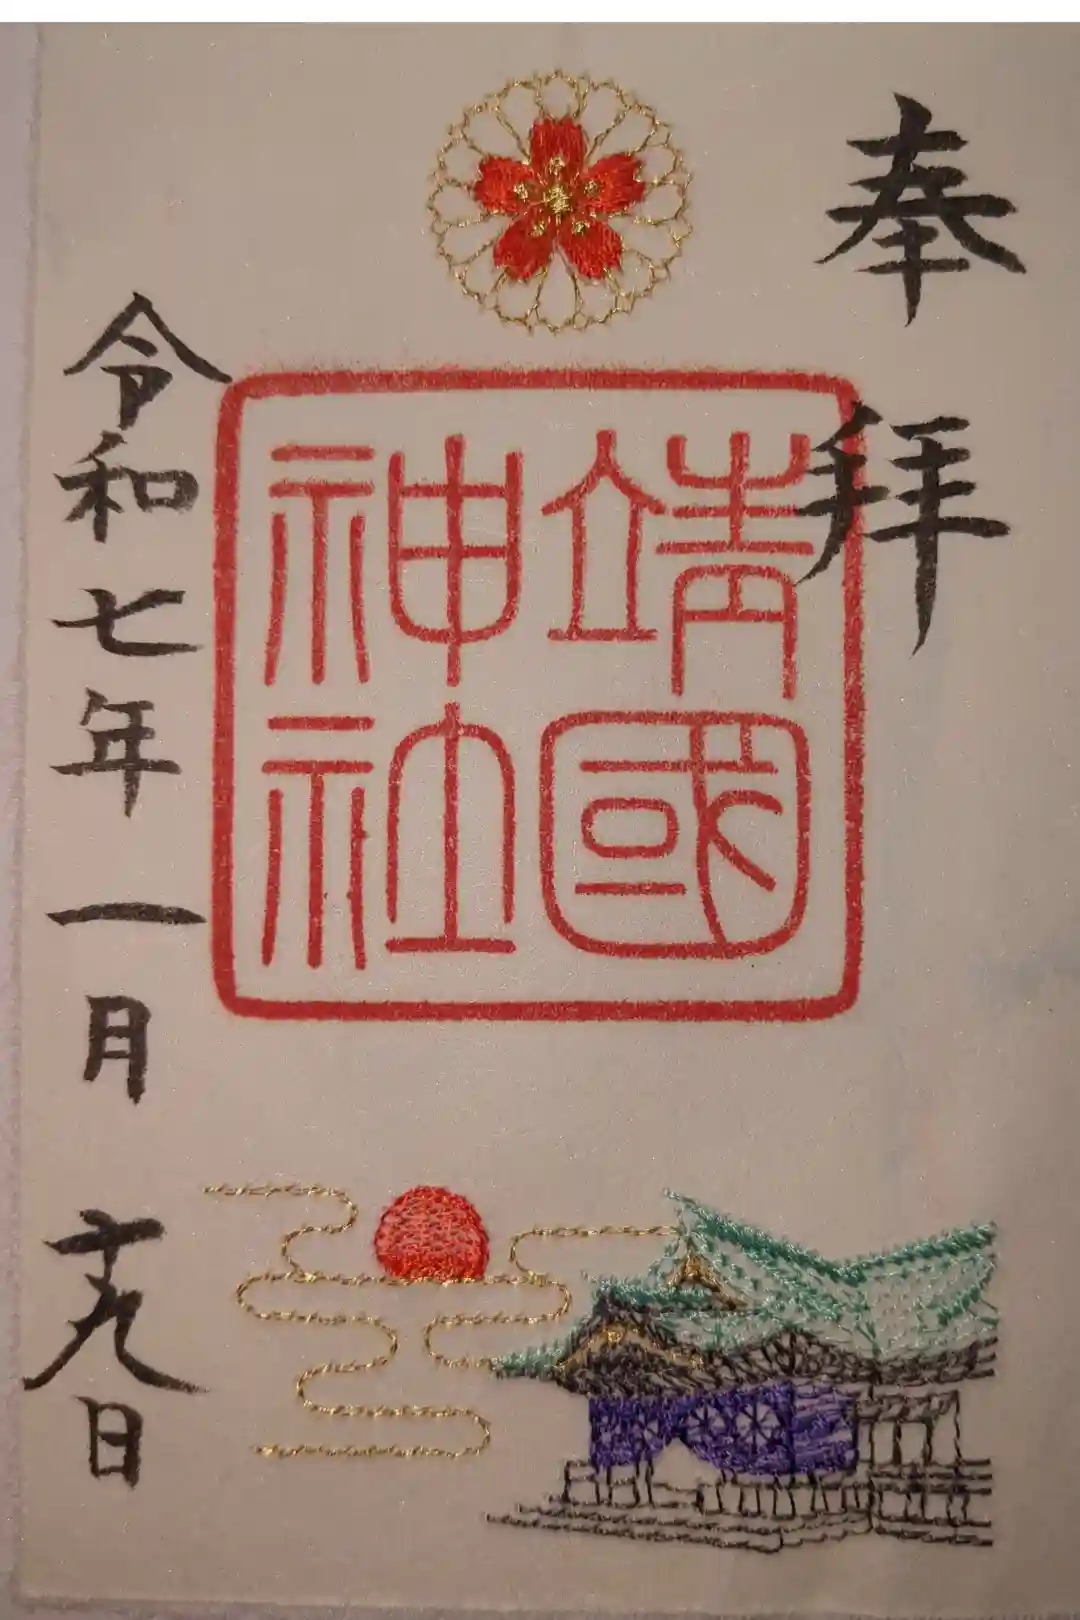 奉拝
靖國
神社
令和七年一月十九日